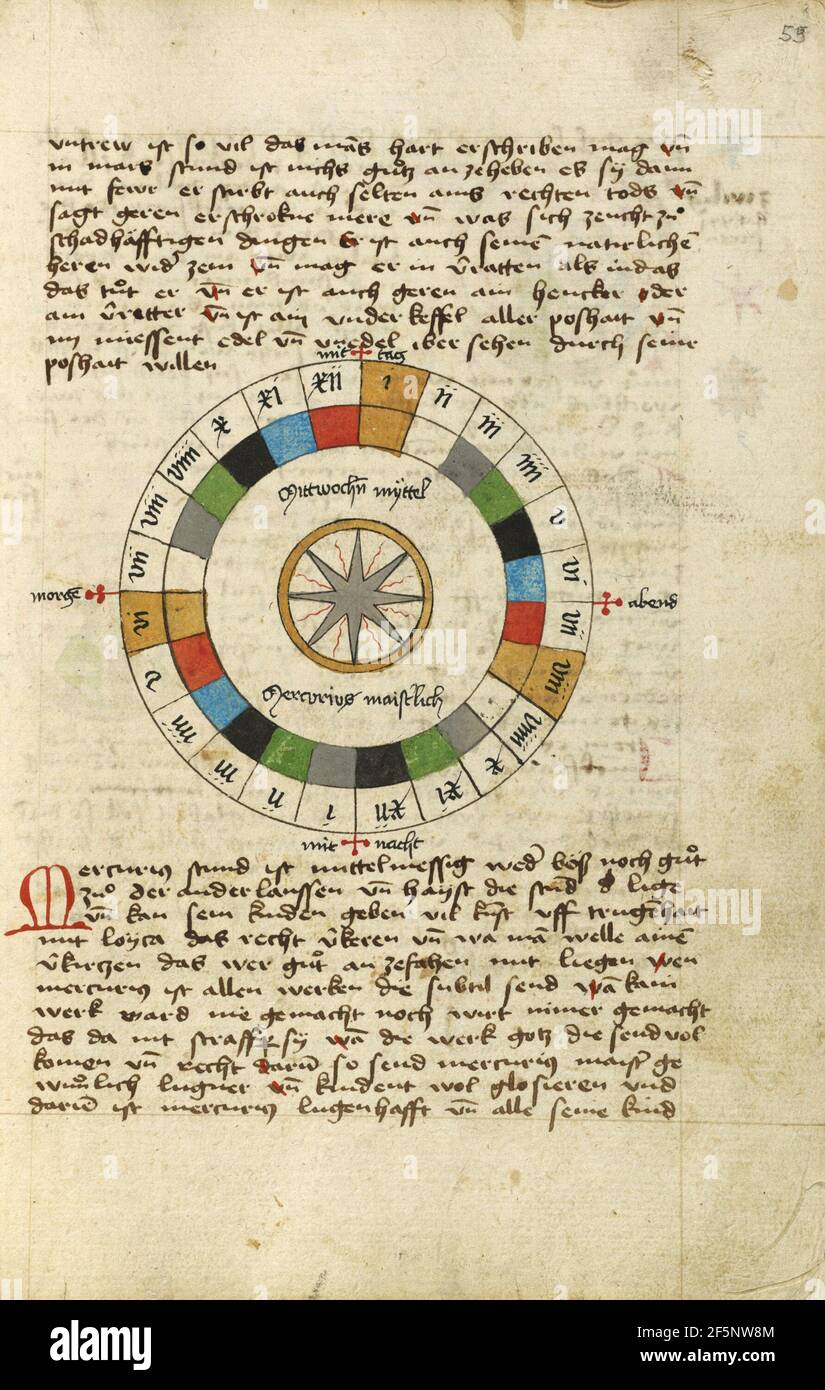 55
untrew ist so vil das mās hart erschriben mag vn̄
in mars stund ist nichs gůtz an zeheben es sy dann
mit fewr er stirbt auch selten ains rechten tods vn̄
sagt geren erschrokne mere vn̄ was sich zeucht zů
schadhäfftigen dingen Er ist auch seinē natürlichē
heren wider zem vn̄ mag er in v̄ratten als iudas
das tůt er vn̄ er ist auch geren ain hencker oder
ain v̄retter vn̄ ist ain vnderkeffel aller poshait vn̄
miessent edel vn̄ vnedel iber sehen durch seine
poshait willen
mit tag
xii i ii iii iiii v vi vii viii viiii x xi xii i ii iii iiii v vi vii viii viiii x xi
Mittwochn̄ mÿttel
morgē
abend
Mercurius maistlich
mit nacht
Mercurius stund ist mittelmessig weder bös noch gůt
zů der ander laussen vn̄ hayst die stūd d lige
vn̄ kan sein kinden geben vil kūst vff trugēhait
mit loyca das recht v̄keren vn̄ wa mā welle ainē
v̄kirczen das wer gůt an zefahen mit liegen wen
mercurius ist allen werken die subtil send wā kain
werk ward nie gemacht noch wirt nimer gemacht
das da nit straff sy wā die werk gotz die send vol
komen vn̄ recht darū so send mercurius maist ge
wonlich lugner vn̄ kindent wol glosieren vnd
darū ist mercurius lugenhafft vn̄ alle seine kind
alamy
Image ID: 2F5NW8M
www.alamy.com